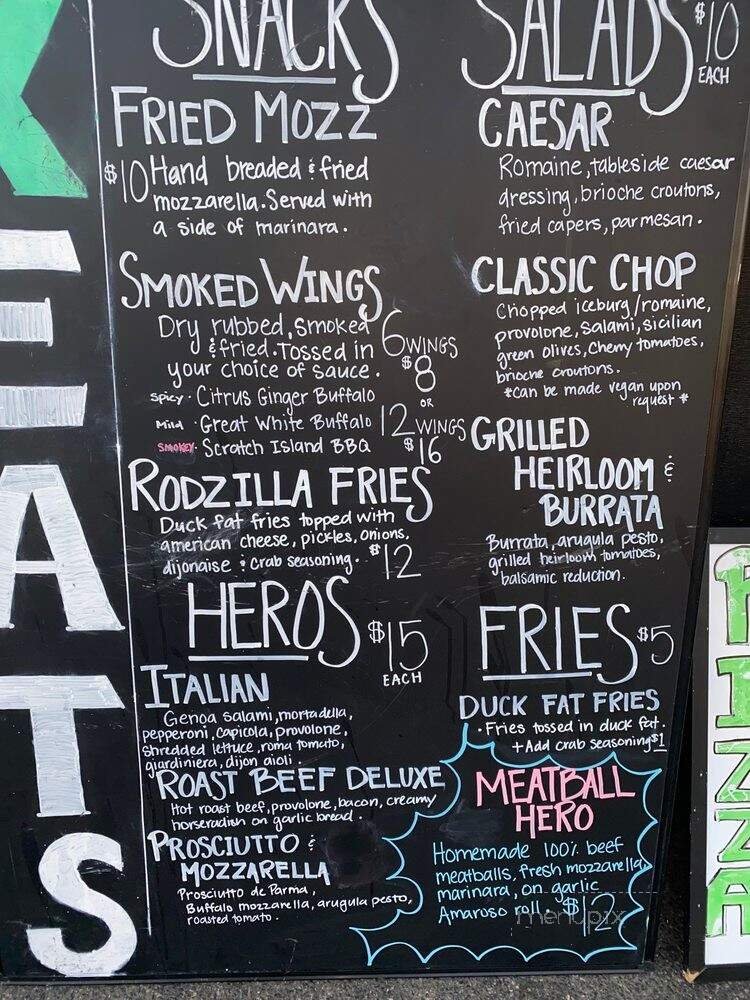 SNACKS
FRIED MOZZ
$10 Hand breaded & fried
mozzarella. Served with
a side of marinara.
SMOKED WINGS
Dry rubbed, smoked
& fried. Tossed in
your choice of sauce.
Spicy · Citrus Ginger Buffalo
Mild · Great White Buffalo
SMOKEY · Scratch Island BBQ
6 WINGS
$8
OR
12 WINGS
$16
RODZILLA FRIES
Duck fat fries topped with
american cheese, pickles, onions,
dijonaise & crab seasoning. $12
HEROS $15
EACH
ITALIAN
Genoa salami, mortadella,
pepperoni, capicola, provolone,
shredded lettuce, roma tomato,
giardiniera, dijon aioli.
ROAST BEEF DELUXE
Hot roast beef, provolone, bacon, creamy
horseradish on garlic bread.
PROSCIUTTO &
MOZZARELLA
Prosciutto de Parma,
Buffalo mozzarella, arugula pesto,
roasted tomato.
SALADS $10
EACH
CAESAR
Romaine, tableside caesar
dressing, brioche croutons,
fried capers, parmesan.
CLASSIC CHOP
Chopped iceburg/romaine,
provolone, salami, sicilian
green olives, Cherry tomatoes,
brioche croutons.
*can be made vegan upon
request *
GRILLED
HEIRLOOM &
BURRATA
Burrata, arugula pesto,
grilled heirloom tomatoes,
balsamic reduction.
FRIES $5
DUCK FAT FRIES
· Fries tossed in duck fat.
+ Add crab seasoning $1
MEATBALL
HERO
Homemade 100% beef
meatballs, fresh mozzarella,
marinara, on garlic
Amaroso roll. $12
menupix
EATS
PIZZA